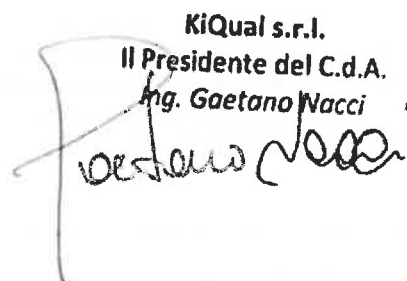 KiQual s.r.l.
Il Presidente del C.d.A.
Ing. Gaetano Nacci
Gaetano Nacci